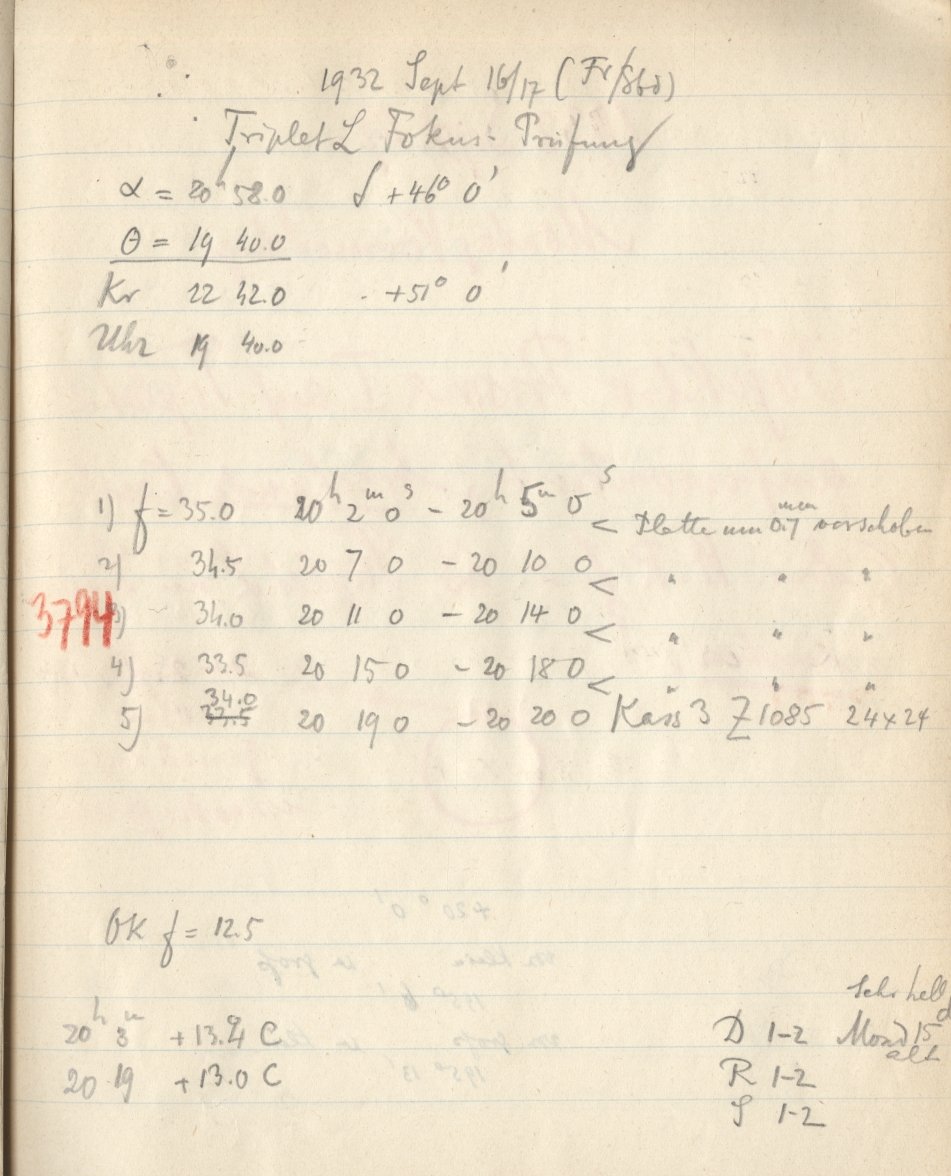 1932 Sept 16/17 (Fr/Sbd)
Triplet L Fokus-Prüfung
α = 20h 58.0 δ +46° 0'
θ = 19 40.0
Kr 22 42.0 +51° 0'
Uhr 19 40.0
1) f = 35.0 20h 2m 0s - 20h 5m 0s < Platte um 0.7 mm verschoben
2) 34.5 20 7 0 - 20 10 0 < " " "
3794 3) 34.0 20 11 0 - 20 14 0 < " " "
4) 33.5 20 15 0 - 20 18 0 < " " "
5) 34.0 20 19 0 - 20 20 0 Kass 3 Z 1085 24x24
OK f = 12.5
Sehr hell
20h 3m +13.4 C D 1-2 Mond 15d
alt
20 19 +13.0 C R 1-2
S 1-2